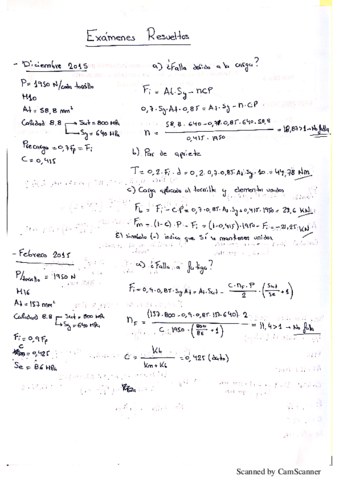 Exámenes Resueltos
- Diciembre 2015
P = 1950 N/cada tornillo
M10
At = 58,8 mm²
Calidad 8.8 → Sut = 800 MPa
→ Sy = 640 MPa
Precarga = 0,7Fp = Fi
C = 0,415
a) ¿Falla debido a la carga?
Fi = At·Sy - nCP
0,7·Sy·At·0,85 = At·Sy - n·C·P
n = (58,8·640 - 0,7·0,85·640·58,8) / (0,415·1950) = 18,83 > 1 → No falla
b) Par de apriete
T = 0,2·Fi·d = 0,2·0,7·0,85·At·Sy·10 = 44,78 Nm
c) Carga aplicada al tornillo y elementos unidos
Fb = Fi - C·P = 0,7·0,85·At·Sy + 0,415·1950 = 23,6 KN
Fm = (1-C)·P - Fi = (1-0,415)·1950 - Fi = -21,25 KN
El simbolo (-) indica que Sí se mantienen unidos
- Febrero 2015
P/tornillo = 1950 N
M16
At = 157 mm²
Calidad 8.8 → Sut = 800 MPa
→ Sy = 640 MPa
Fi = 0,9Fp
C = 0,425
Se = 86 MPa
a) ¿Falla a fatiga?
Fi = 0,9·0,85·Sy·At = At·Sut - (C·nf·P / 2)·(Sut/Se + 1)
nf = (157·800 - 0,9·0,85·157·640)·2 / (C·1950·(800/86 + 1)) = 11,4 > 1 → No falla
C = Kb / (Km + Kb) = 0,425 (dato)
Scanned by CamScanner